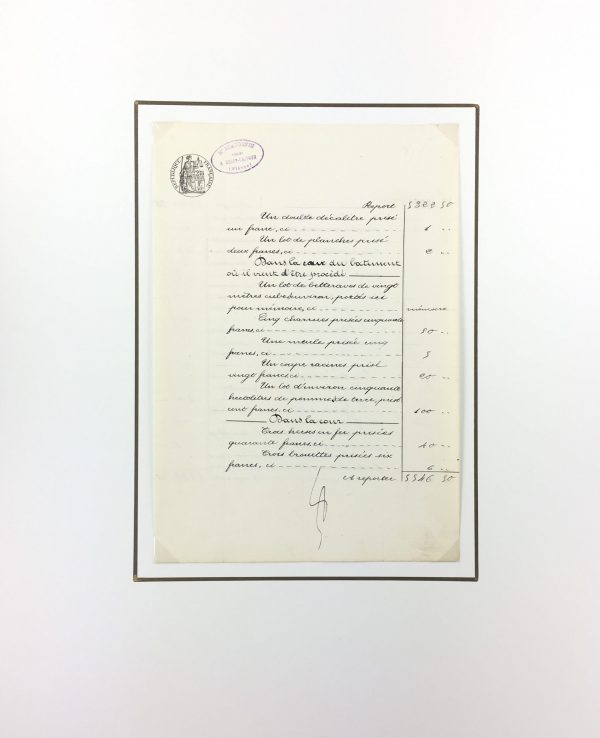 REPUBLIQUE FRANÇAISE
Report 5322 50
Un double décalitre prisé
un franc, ci 1 ..
Un lot de planches prisé
deux francs, ci 2 ..
Dans la cave du bâtiment
où il vient d'être procédé
Un lot de betteraves de vingt
mètres cubes environ, portés ici
pour mémoire, ci mémoire
Cinq charrues prisées cinquante
francs, ci 50 ..
Une meule prisée cinq
francs, ci 5
Un coupe racines prisé
vingt francs, ci 20 ..
Un lot d'environ cinquante
hectolitres de pommes de terre, prisé
cent francs, ci 100 ..
Dans la cour
Trois herses en fer prisées
quarante francs, ci 40 ..
Trois brouettes prisées six
francs, ci 6 ..
A reporter 5546 50